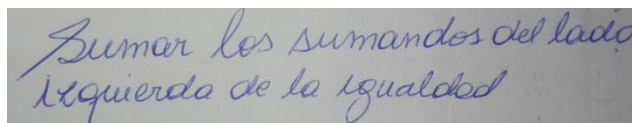 Sumar los sumandos del lado
izquierda de la igualdad